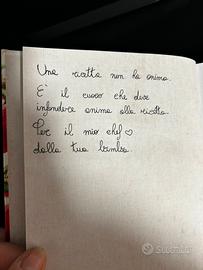 Una ricetta non ha anima.
E' il cuoco che deve
infondere anima alla ricetta.
Per il mio chef ♡
dalla tua bimba.
Subito.it